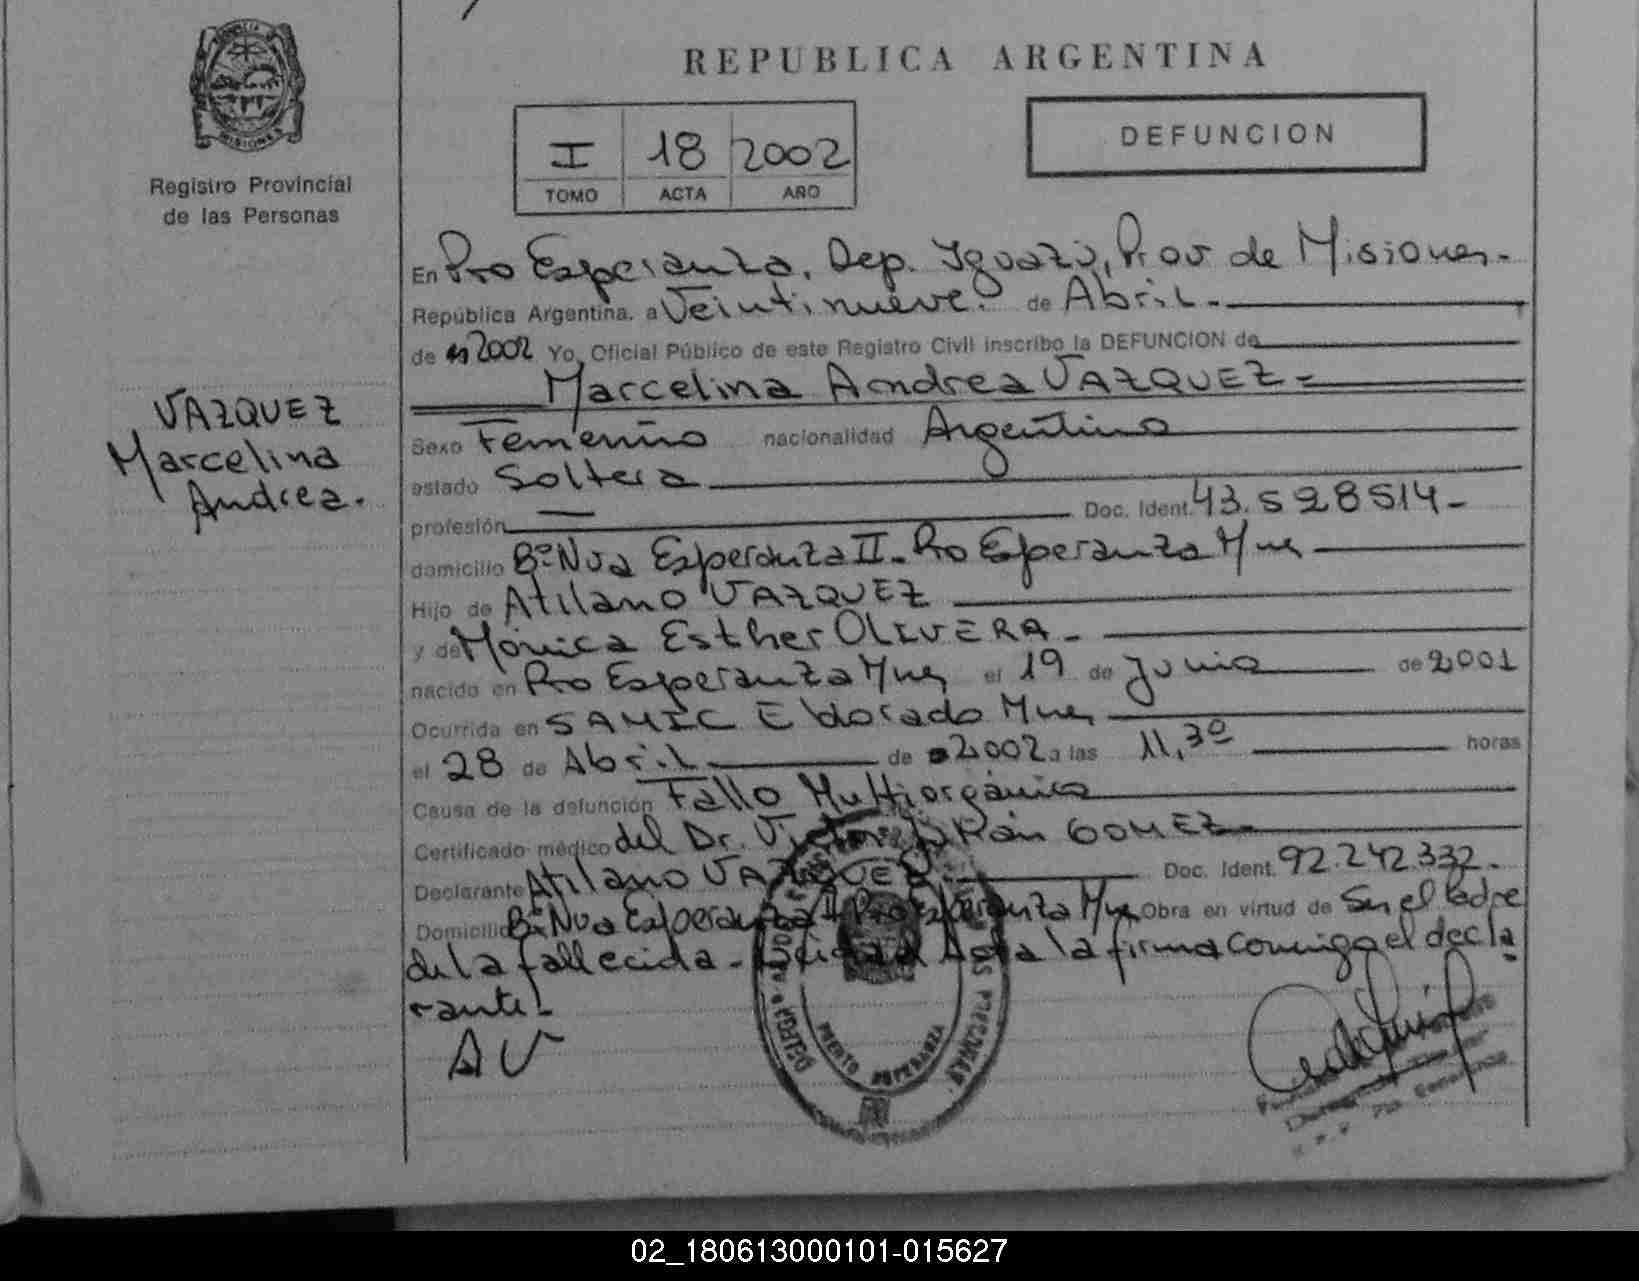 REPUBLICA ARGENTINA
MISIONES
Registro Provincial
de las Personas
I 18 2002
TOMO ACTA AÑO
DEFUNCION
En Pto Esperanza, Dep. Iguazú, Prov de Misiones.-
República Argentina, a Veintinueve. de Abril.-
de 2002 Yo, Oficial Público de este Registro Civil inscribo la DEFUNCION de
Marcelina Andrea VAZQUEZ=
VAZQUEZ
Marcelina
Andrea.
Sexo Femenino nacionalidad Argentina
estado Soltera
profesión — Doc. Ident. 43.528514-
domicilio Bº Nva Esperanza II- Pto Esperanza Mnes
Hijo de Atilano VAZQUEZ
y de Mónica Esther OLIVERA-
nacido en Pto Esperanza Mnes el 19 de Junio de 2001
Ocurrida en SAMIC Eldorado Mnes
el 28 de Abril de 2002 a las 11,30 horas
Causa de la defunción Fallo Multiorgánico
Certificado médico del Dr. GOMEZ-
Declarante Atilano VAZQUEZ Doc. Ident. 92.242.332.
Domicilio Bº Nva Esperanza II Pto Esperanza Mnes Obra en virtud de Ser el Padre
de la fallecida- Leida el Acta la firma conmigo el decla
rante-
AV
PUERTO ESPERANZA
02_180613000101-015627